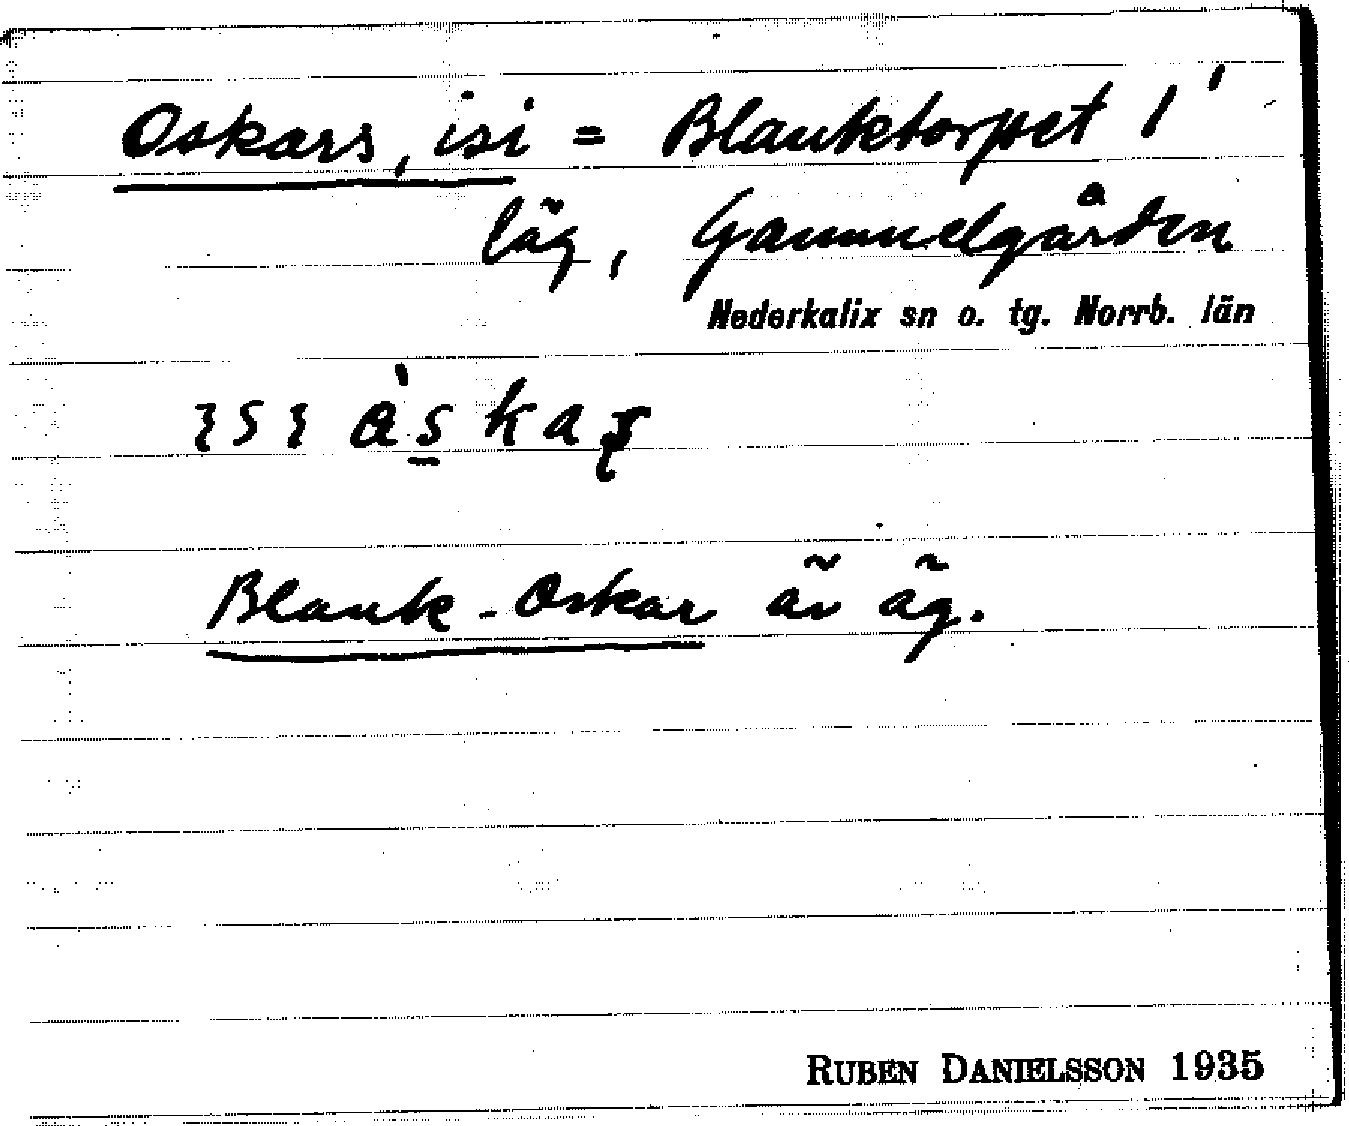 Oskars, isi = Blanktorpet 1'
läg, Gammelgården
Nederkalix sn o. tg. Norrb. län
Blank-Oskar är äg.
RUBEN DANIELSSON 1935